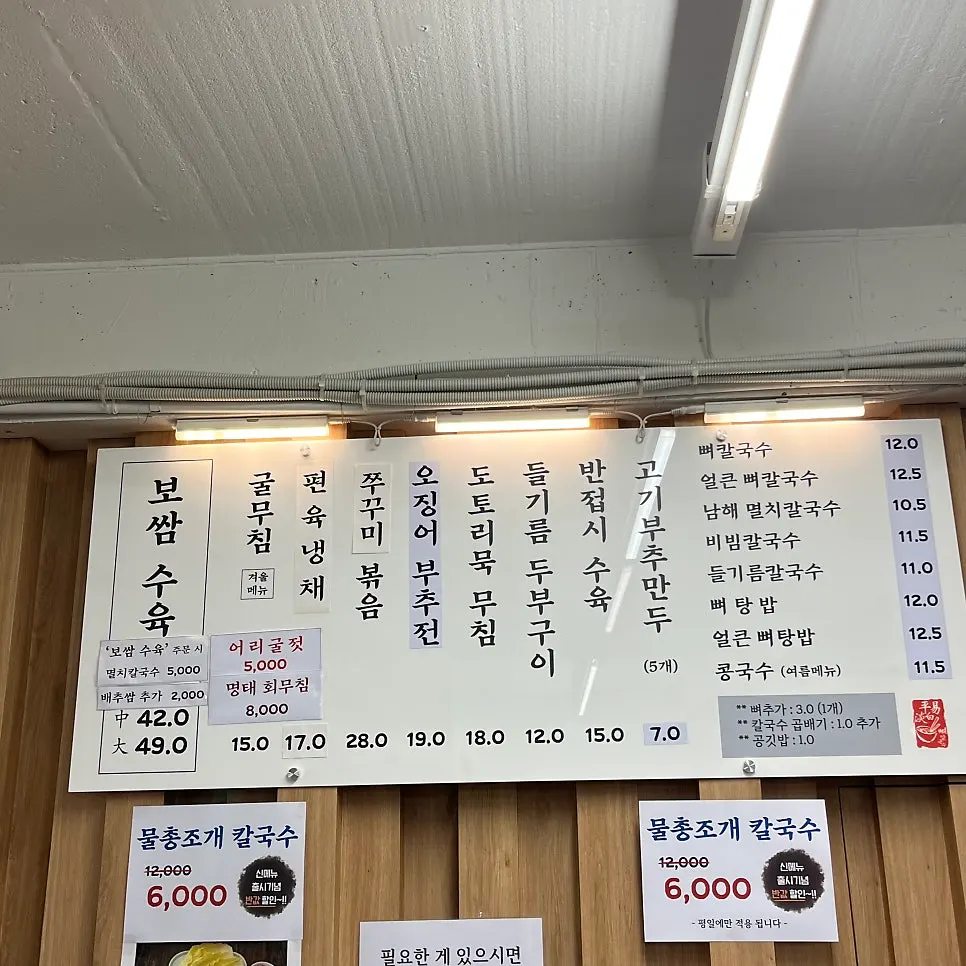 보쌈 수육
'보쌈 수육' 주문 시
멸치칼국수 5,000
배추쌈 추가 2,000
中 42.0
大 49.0
굴무침
겨울
메뉴
15.0
어리굴젓
5,000
명태 회무침
8,000
편육냉채
17.0
쭈꾸미 볶음
28.0
오징어 부추전
19.0
도토리묵 무침
18.0
들기름 두부구이
12.0
반접시 수육
15.0
고기부추만두
(5개)
7.0
뼈칼국수 12.0
얼큰 뼈칼국수 12.5
남해 멸치칼국수 10.5
비빔칼국수 11.5
들기름칼국수 11.0
뼈 탕 밥 12.0
얼큰 뼈탕밥 12.5
콩국수 (여름메뉴) 11.5
** 뼈추가 : 3.0 (1개)
** 칼국수 곱배기 : 1.0 추가
** 공깃밥 : 1.0
물총조개 칼국수
12,000
6,000
신메뉴
출시기념
반값 할인~!!
물총조개 칼국수
12,000
6,000
신메뉴
출시기념
반값 할인~!!
- 평일에만 적용 됩니다 -
필요한 게 있으시면